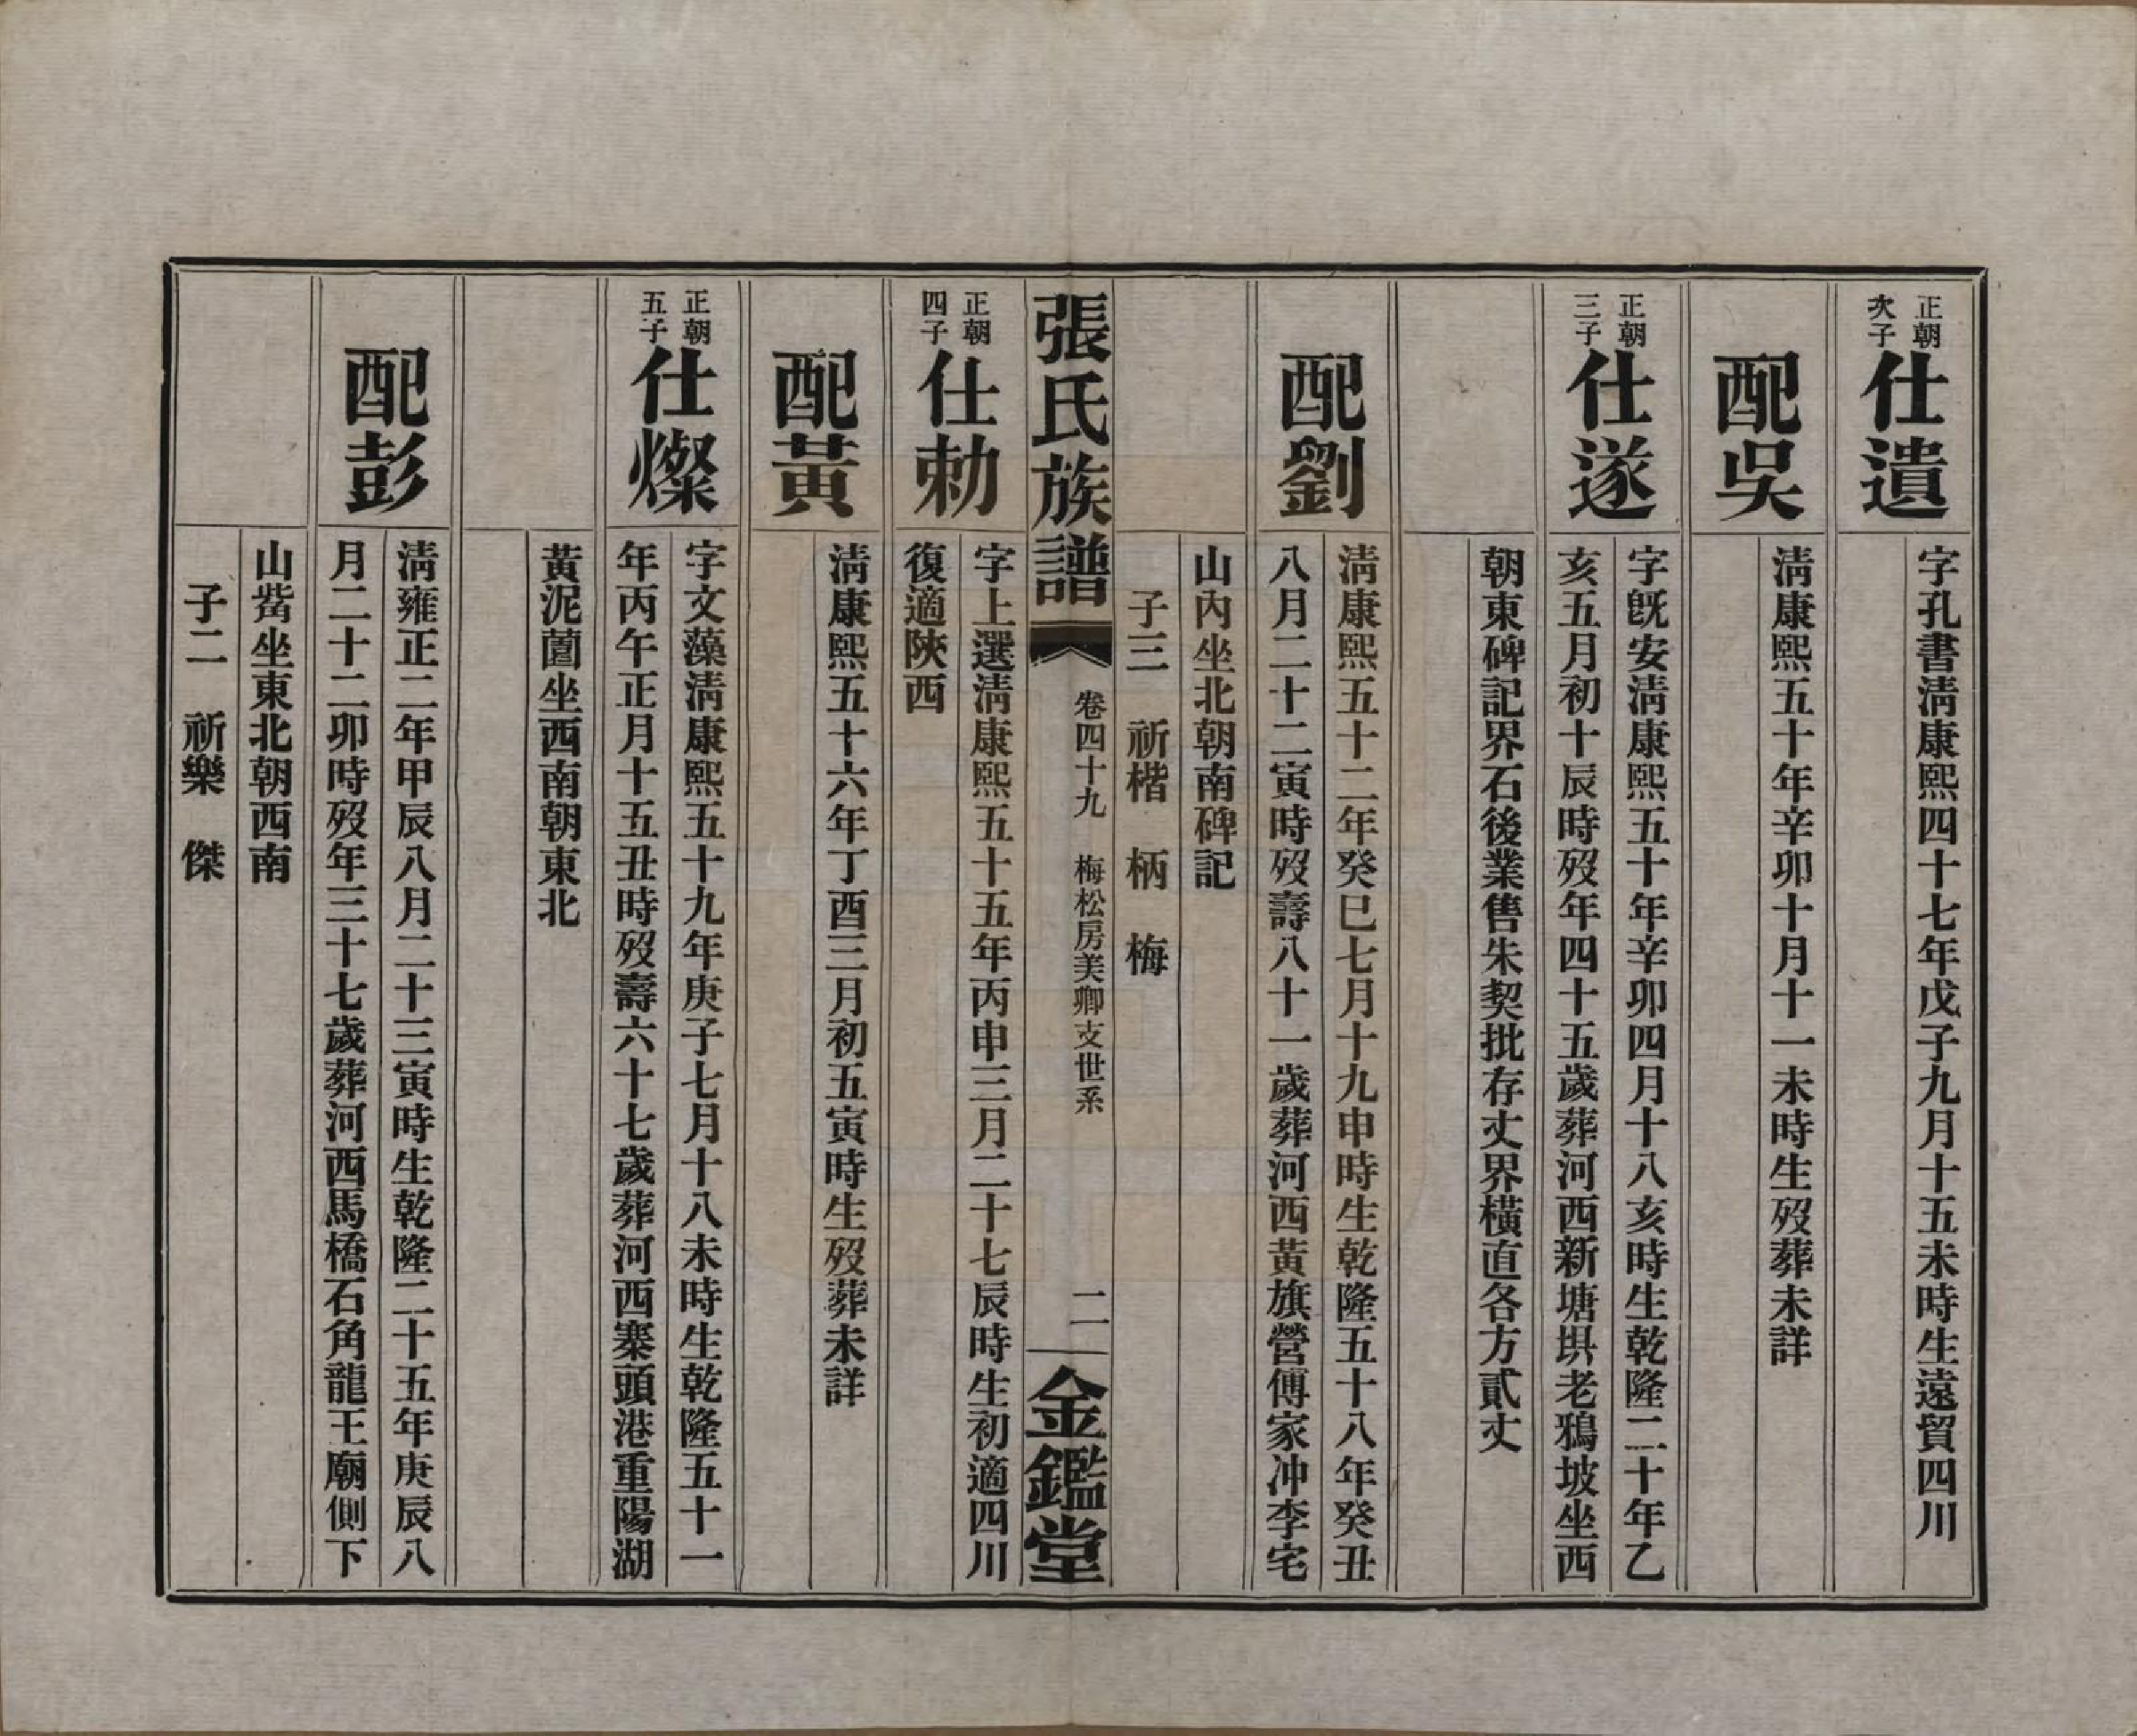 正朝
次子
仕遺
字孔書淸康熙四十七年戊子九月十五未時生遠貿四川
配吳
淸康熙五十年辛卯十月十一未時生歿葬未詳
正朝
三子
仕遂
字旣安淸康熙五十年辛卯四月十八亥時生乾隆二十年乙
亥五月初十辰時歿年四十五歲葬河西新塘垻老鴉坡坐西
朝東碑記界石後業售朱契批存丈界橫直各方貳丈
配劉
淸康熙五十二年癸巳七月十九申時生乾隆五十八年癸丑
八月二十二寅時歿壽八十一歲葬河西黃旗營傅家冲李宅
山內坐北朝南碑記
子三　祈楷　柄　梅
張氏族譜
卷四十九　梅松房美卿支世系
二
金鑑堂
正朝
四子
仕勅
字上選淸康熙五十五年丙申三月二十七辰時生初適四川
復適陝西
配黃
淸康熙五十六年丁酉三月初五寅時生歿葬未詳
正朝
五子
仕燦
字文藻淸康熙五十九年庚子七月十八未時生乾隆五十一
年丙午正月十五丑時歿壽六十七歲葬河西寨頭港重陽湖
黃泥薗坐西南朝東北
配彭
淸雍正二年甲辰八月二十三寅時生乾隆二十五年庚辰八
月二十二卯時歿年三十七歲葬河西馬橋石角龍王廟側下
山觜坐東北朝西南
子二　祈樂　傑